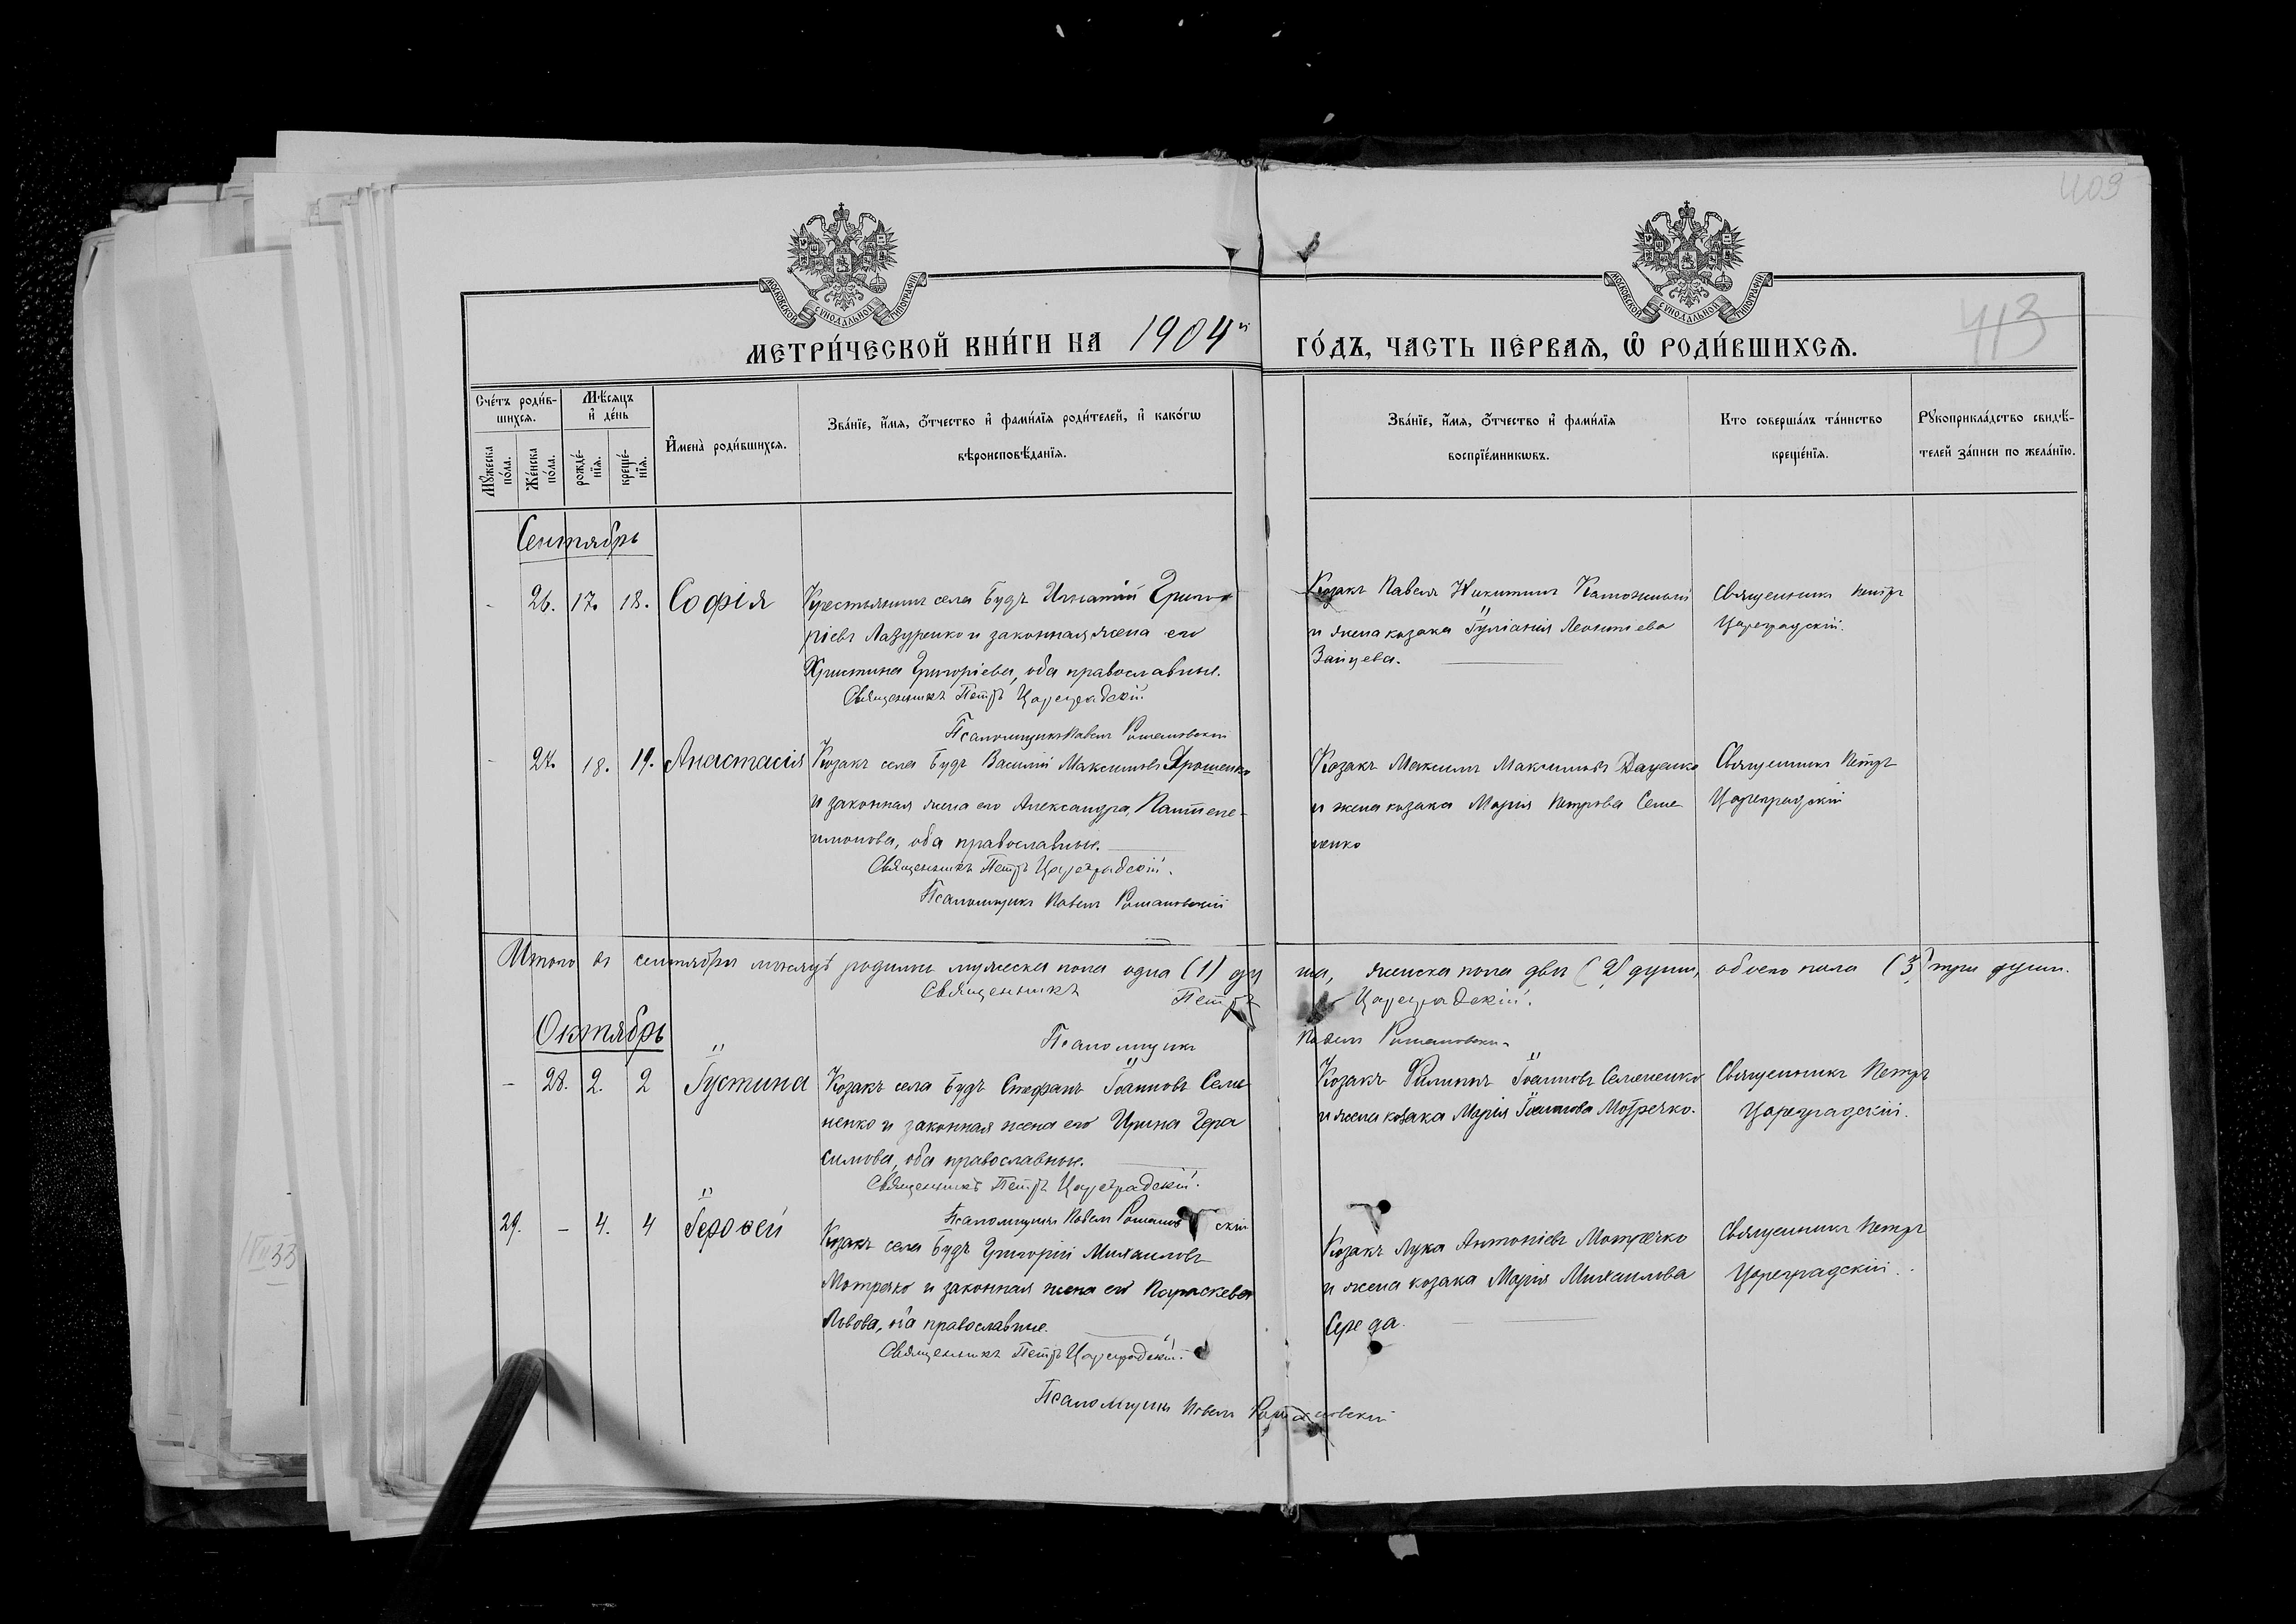 409
413
МОСКОВСКОЙ СУНОДАЛЬНОЙ ТИПОГРАФІИ
МОСКОВСКОЙ СУНОДАЛЬНОЙ ТИПОГРАФІИ
МЕТРИ́ЧЕСКОЙ КНИ́ГИ НА 1904й ГО́ДЪ, ЧАСТЬ ПЕ́РВАЯ, Ѡ҆ РОДИ́ВШИХСЯ.
Сче́тъ роди́в-
шихся.
Мѣ́сяцъ
и҆ де́нь
Мꙋ́жеска по́ла.
Же́нска по́ла.
рожде́-нїя.
креще́-нїя.
И҆мена̀ роди́вшихся.
Зва́нїе, и҆́мя, ѻ҆́тчество и҆ фами́лїя роди́телей, и҆ како́гѡ
вѣроисповѣ́данїя.
Зва́нїе, и҆́мя, ѻ҆́тчество и҆ фами́лїя
воспрїе́мникѡвъ.
Кто соверша́лъ та́инство
креще́нїя.
Рꙋкоприкла́дство свидѣ́-
телей за́писи по жела́нїю.
Сентябрь
- 26. 17. 18. Софія
Крестьянинъ села Будъ Игнатій Григо
ріевъ Лазуренко и законная жена его
Христина Григоріева, оба православные.
Священникъ Петръ Цареградскій
Псаломщикъ Павелъ Романовскій
Козакъ Павелъ Никитинъ
и жена козака Іуліанія Леонтіева
Зайцева.
Священникъ Петръ
Цареградскій.
- 27. 18. 19. Анастасія
Козакъ села Будъ Василій Максимовъ Ярошенко
и законная жена его Александра, Пантеле-
имонова, оба православные.
Священникъ Петръ Цареградскій.
Псаломщикъ Павелъ Романовскій
Козакъ Максимъ Максимовъ Даценко
и жена козака Марія Петрова Семе
ненко
Священникъ Петръ
Цареградскій
Итого въ сентябрѣ мѣсяцѣ родилось мужеска пола одна (1) ду ша, женска пола двѣ (2) души, обоего пола (3) три души.
Священникъ Петръ Цареградскій.
Псаломщикъ Павелъ Романовскій
Октябрь
- 28. 2. 2 Іустина
Козакъ села Будъ Стефанъ Іоанновъ Семе
ненко и законная жена его Ирина Гера
симова, оба православные.
Священникъ Петръ Цареградскій.
Псаломщикъ Павелъ Романовскій
Козакъ Филиппъ Іоанновъ Семененко
и жена козака Марія Іоаннова Мотречко.
Священникъ Петръ
Цареградскій.
29. - 4. 4 Іероѳей
Козакъ села Будъ Григорій Михаиловъ
Мотречко и законная жена его Параскева
Львова, оба православные.
Священникъ Петръ Цареградскій.
Псаломщикъ Павелъ Романовскій
Козакъ Лука Антоніевъ Мотречко
и жена козака Марія Михаилова
Середа.
Священникъ Петръ
Цареградскій.